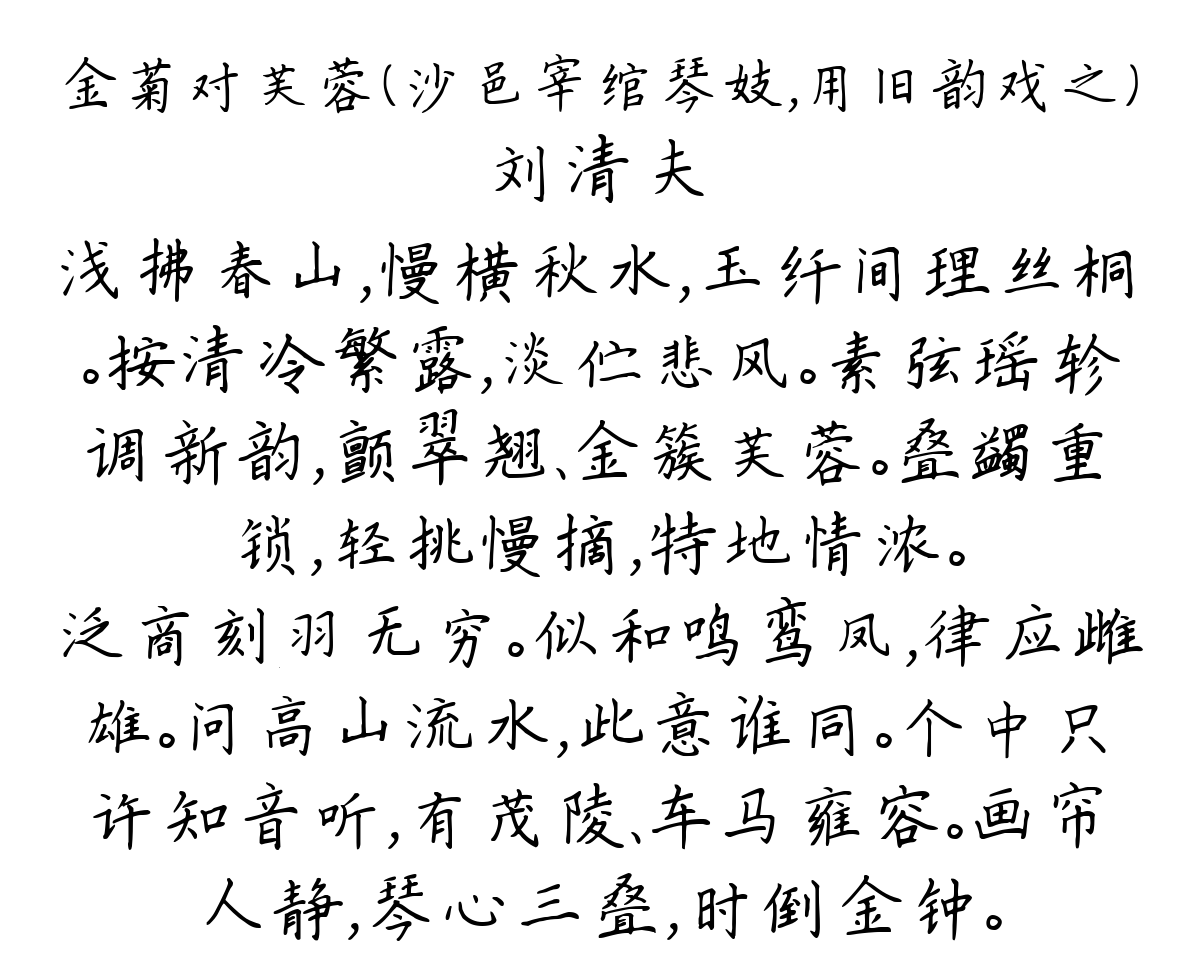 金菊对芙蓉(沙邑宰绾琴妓,用旧韵戏之)
刘清夫
浅拂春山,慢横秋水,玉纤间理丝桐
。按清冷繁露,淡伫悲风。素弦瑶轸
调新韵,颤翠翘、金簇芙蓉。叠蠲重
锁,轻挑慢摘,特地情浓。
泛商刻羽无穷。似和鸣鸾凤,律应雌
雄。问高山流水,此意谁同。个中只
许知音听,有茂陵、车马雍容。画帘
人静,琴心三叠,时倒金钟。